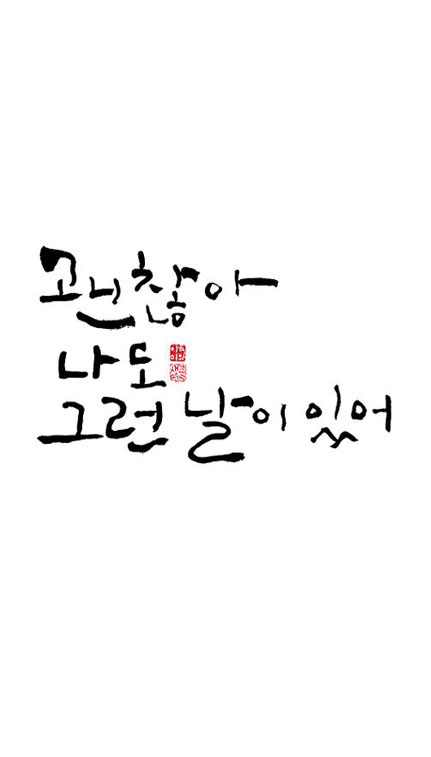 괜찮아
나도
그런 날이 있어